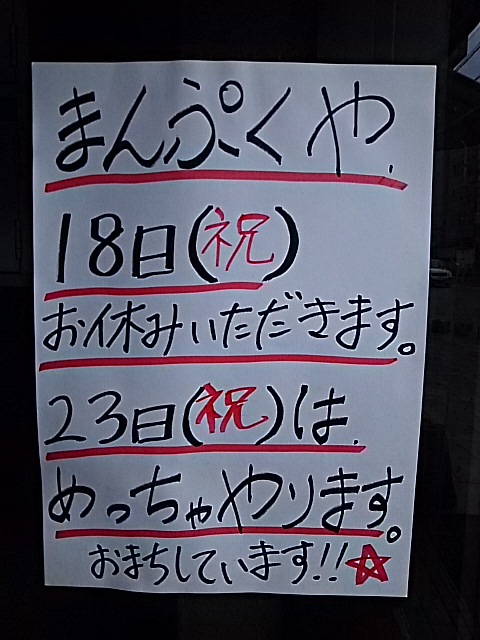 まんぷくや.
18日(祝)
お休みいただきます。
23日(祝)は.
めっちゃやります。
おまちしています!!☆